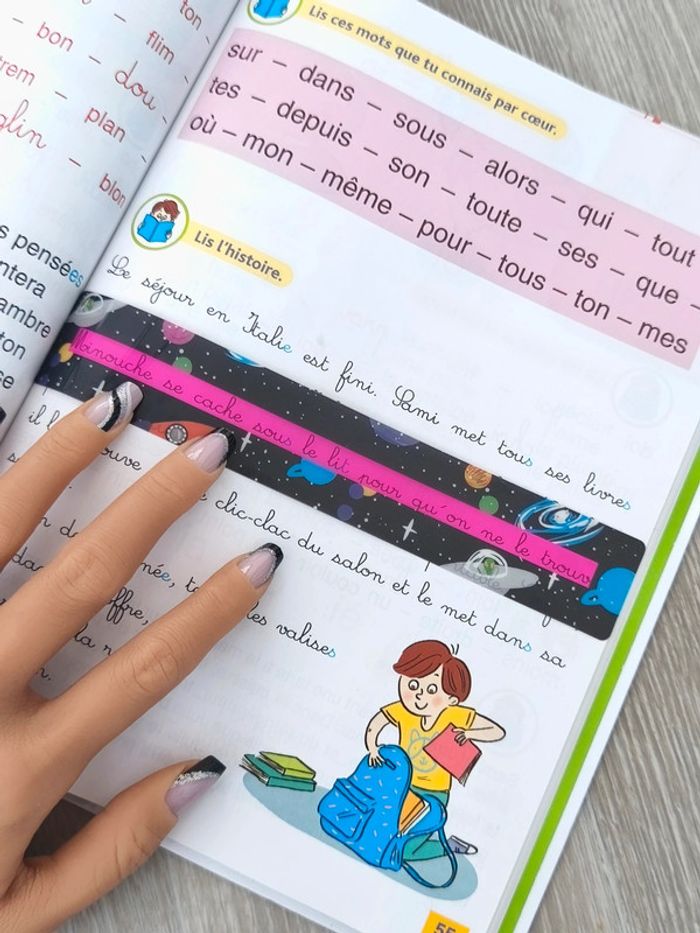 ton
– bon – flim
trem – dou
glin – plan
– blon
s pensées
ntera
ambre
ton
se
Lis ces mots que tu connais par cœur.
sur – dans – sous – alors – qui – tout
tes – depuis – son – toute – ses – que –
où – mon – même – pour – tous – ton – mes
Lis l'histoire.
Le séjour en Italie est fini. Sami met tous ses livres
Minouche se cache sous le lit pour qu'on ne le trouv
il l ouve clic-clac du salon et le met dans sa
n da née, t les valises
da ffre,
la
n.
55